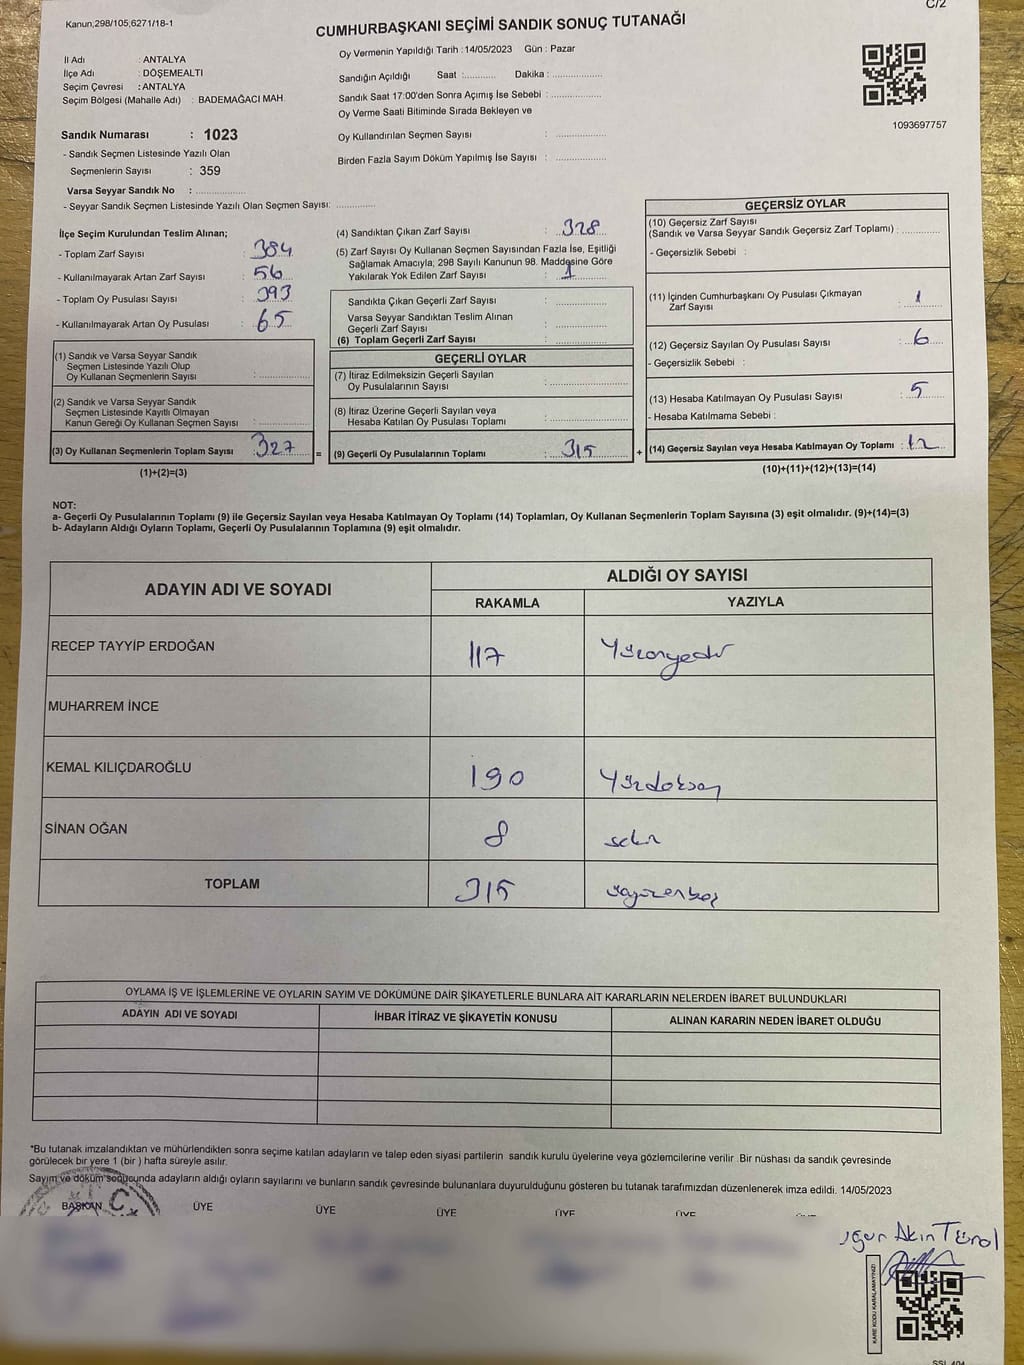 Kanun,298/105;6271/18-1
C/2
CUMHURBAŞKANI SEÇİMİ SANDIK SONUÇ TUTANAĞI
İl Adı : ANTALYA
İlçe Adı : DÖŞEMEALTI
Seçim Çevresi : ANTALYA
Seçim Bölgesi (Mahalle Adı) : BADEMAĞACI MAH.
Sandık Numarası : 1023
- Sandık Seçmen Listesinde Yazılı Olan
Seçmenlerin Sayısı : 359
Varsa Seyyar Sandık No : ..............
- Seyyar Sandık Seçmen Listesinde Yazılı Olan Seçmen Sayısı: ............
Oy Vermenin Yapıldığı Tarih : 14/05/2023 Gün : Pazar
Sandığın Açıldığı Saat :.......... Dakika : ...............
Sandık Saat 17:00'den Sonra Açımış İse Sebebi : ...............
Oy Verme Saati Bitiminde Sırada Bekleyen ve
Oy Kullandırılan Seçmen Sayısı : ...............
Birden Fazla Sayım Döküm Yapılmış İse Sayısı : ...............
1093697757
İlçe Seçim Kurulundan Teslim Alınan;
- Toplam Zarf Sayısı : 384
- Kullanılmayarak Artan Zarf Sayısı : 56
- Toplam Oy Pusulası Sayısı : 393
- Kullanılmayarak Artan Oy Pusulası : 65
(1) Sandık ve Varsa Seyyar Sandık
Seçmen Listesinde Yazılı Olup
Oy Kullanan Seçmenlerin Sayısı : ...............
(2) Sandık ve Varsa Seyyar Sandık
Seçmen Listesinde Kayıtlı Olmayan
Kanun Gereği Oy Kullanan Seçmen Sayısı : ...............
(3) Oy Kullanan Seçmenlerin Toplam Sayısı : 327 =
(1)+(2)=(3)
(4) Sandıktan Çıkan Zarf Sayısı : 328
(5) Zarf Sayısı Oy Kullanan Seçmen Sayısından Fazla İse, Eşitliği
Sağlamak Amacıyla; 298 Sayılı Kanunun 98. Maddesine Göre
Yakılarak Yok Edilen Zarf Sayısı : 1
Sandıkta Çıkan Geçerli Zarf Sayısı : ...............
Varsa Seyyar Sandıktan Teslim Alınan
Geçerli Zarf Sayısı : ...............
(6) Toplam Geçerli Zarf Sayısı : ...............
GEÇERLİ OYLAR
(7) İtiraz Edilmeksizin Geçerli Sayılan
Oy Pusulalarının Sayısı : ...............
(8) İtiraz Üzerine Geçerli Sayılan veya
Hesaba Katılan Oy Pusulası Toplamı : ...............
(9) Geçerli Oy Pusulalarının Toplamı : 315 +
GEÇERSİZ OYLAR
(10) Geçersiz Zarf Sayısı
(Sandık ve Varsa Seyyar Sandık Geçersiz Zarf Toplamı) : ............
- Geçersizlik Sebebi :
(11) İçinden Cumhurbaşkanı Oy Pusulası Çıkmayan
Zarf Sayısı : 1
(12) Geçersiz Sayılan Oy Pusulası Sayısı : 6
- Geçersizlik Sebebi :
(13) Hesaba Katılmayan Oy Pusulası Sayısı : 5
- Hesaba Katılmama Sebebi :
(14) Geçersiz Sayılan veya Hesaba Katılmayan Oy Toplamı : 12
(10)+(11)+(12)+(13)=(14)
NOT:
a- Geçerli Oy Pusulalarının Toplamı (9) ile Geçersiz Sayılan veya Hesaba Katılmayan Oy Toplamı (14) Toplamları, Oy Kullanan Seçmenlerin Toplam Sayısına (3) eşit olmalıdır. (9)+(14)=(3)
b- Adayların Aldığı Oyların Toplamı, Geçerli Oy Pusulalarının Toplamına (9) eşit olmalıdır.
ADAYIN ADI VE SOYADI ALDIĞI OY SAYISI
RAKAMLA YAZIYLA
RECEP TAYYİP ERDOĞAN 117 Yüzonyedi
MUHARREM İNCE
KEMAL KILIÇDAROĞLU 190 Yüzdoksan
SİNAN OĞAN 8 sekiz
TOPLAM 315 üçyüzonbeş
OYLAMA İŞ VE İŞLEMLERİNE VE OYLARIN SAYIM VE DÖKÜMÜNE DAİR ŞİKAYETLERLE BUNLARA AİT KARARLARIN NELERDEN İBARET BULUNDUKLARI
ADAYIN ADI VE SOYADI İHBAR İTİRAZ VE ŞİKAYETİN KONUSU ALINAN KARARIN NEDEN İBARET OLDUĞU
*Bu tutanak imzalandıktan ve mühürlendikten sonra seçime katılan adayların ve talep eden siyasi partilerin sandık kurulu üyelerine veya gözlemcilerine verilir. Bir nüshası da sandık çevresinde
görülecek bir yere 1 (bir ) hafta süreyle asılır.
Sayım ve döküm sonucunda adayların aldığı oyların sayılarını ve bunların sandık çevresinde bulunanlara duyurulduğunu gösteren bu tutanak tarafımızdan düzenlenerek imza edildi. 14/05/2023
BAŞKAN ÜYE ÜYE ÜYE ÜYE ÜYE
Akın
KARE KODU KARALAMAYINIZ!